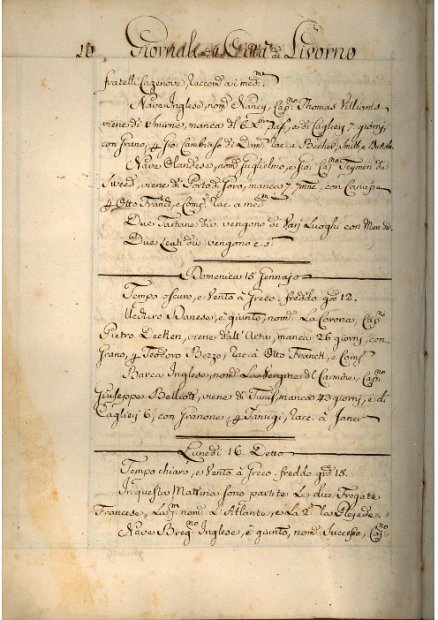 10 Giornale Città di Livorno
fratelli Cazenove Raccom. a i med.mi
Nave Inglese, nom.ta Nancy, Cap.no Thomas Villiams
viene di Smirne, manca di e di Caglieri 7 giorni,
con Grano, Racc. a Smith e
Nave Olandese, nom. Guglielmo, e Gio: Cap.no Teymen de
viene di manca 7 con Canapa
Otto Franck, e Comp. Rac. a med.mi
Due Tartane div. vengono di Varj Luoghi con Mer. div.
Due Leuti div. vengono e. s.
Domenica 15 Gennajo
Tempo oscuro, e Vento à Greco freddo g. 12.
Danese, è giunto, nom. La Corona, Cap.no
Pietro Decken, viene dall'Arta, manca 26 giorni, con
Grano, Teodoro Bozzo, Rac. à Otto Franck, e Comp.
Barca Inglese, nom. La Vergine del Carmine, Cap.no
Giuseppe viene di Tunis, manca 43 giorni, e di
Caglieri 6, con Granone, Tarugi, Rac. à Janer
Lunedì 16. Detto
Tempo chiaro, e Vento à Greco freddo g. 15.
In questa Mattina sono partite Le due Fregate
Francese, La p. nom. L'Atlante, e La 2.a
Nave Inglese, è giunto, nom. Successo, Cap.no